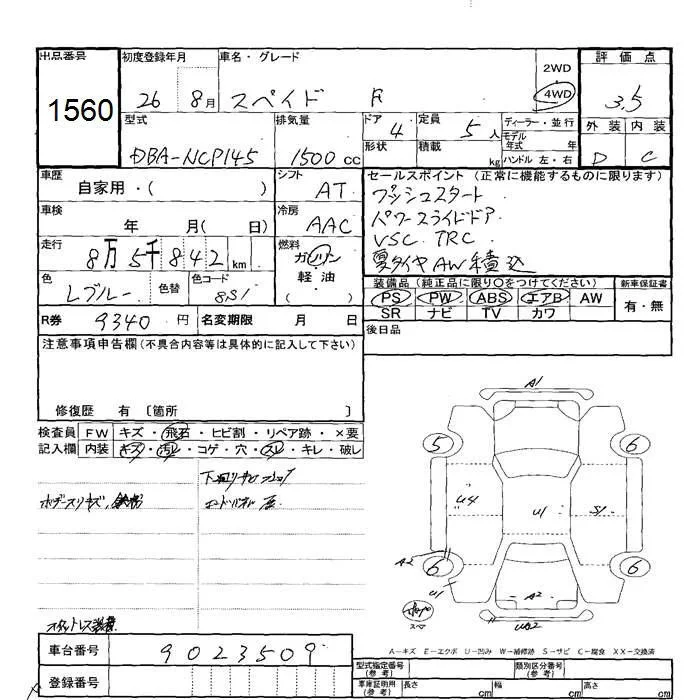 出品番号 初度登録年月 車名・グレード 評価点
1560 26 8月 スペイド F 2WD 4WD 3.5
型式 排気量 ドア 定員 ディーラー・並行 外装 内装
DBA-NCP145 1500cc 4 5人 モデル年式 年 D C
形状 積載 kg ハンドル 左・右
車歴 シフト セールスポイント (正常に機能するものに限ります)
自家用・( ) AT プッシュスタート
車検 冷房 パワースライドドア
年 月( 日) AAC VSC. TRC
走行 燃料 夏タイヤAW積込
8万5千842km ガソリン
色 色替 色コード 軽油 装備品(純正品に限り○をつけてください) 新車保証書
Lブルー 8S1 ( ) PS PW ABS エアB AW 有・無
SR ナビ TV カワ
R券 9340円 名変期限 月 日 後日品
注意事項申告欄(不具合内容等は具体的に記入して下さい)
修復歴 有 〔箇所 〕
検査員 FW キズ・飛石・ヒビ割・リペア跡・×要
記入欄 内装 キズ・汚レ・コゲ・穴・スレ・キレ・破レ
下廻りサビ
A1
5 6
U4 U1 S1
A2 6 6
U1 A2
スペア
車台番号 9023509
登録番号
A-キズ E-エクボ U-凹み W-補修跡 S-サビ C-腐食 XX-交換済
型式指定番号(参考) 類別区分番号(参考)
車庫証明用(参考) 長さ cm 幅 cm 高さ cm